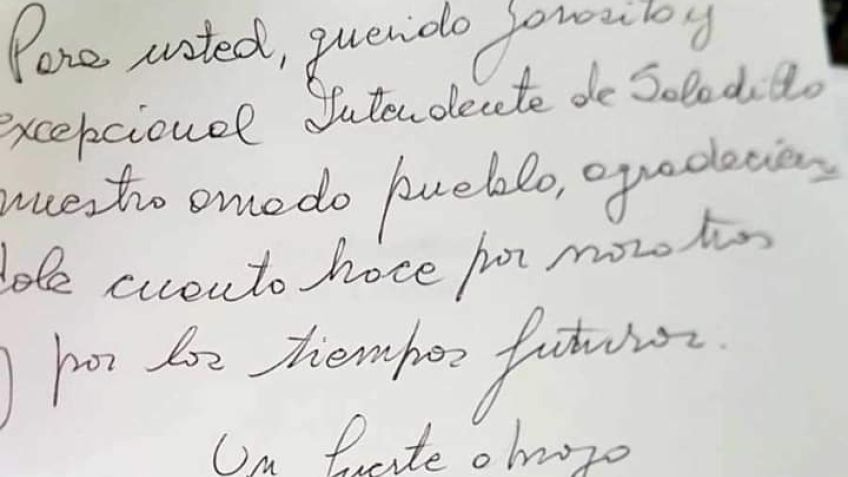 Para usted, querido Gorosito y
excepcional Intendente de Saladillo
nuestro amado pueblo, agradecién
dole cuanto hace por nosotros
y por los tiempos futuros.
Un fuerte abrazo